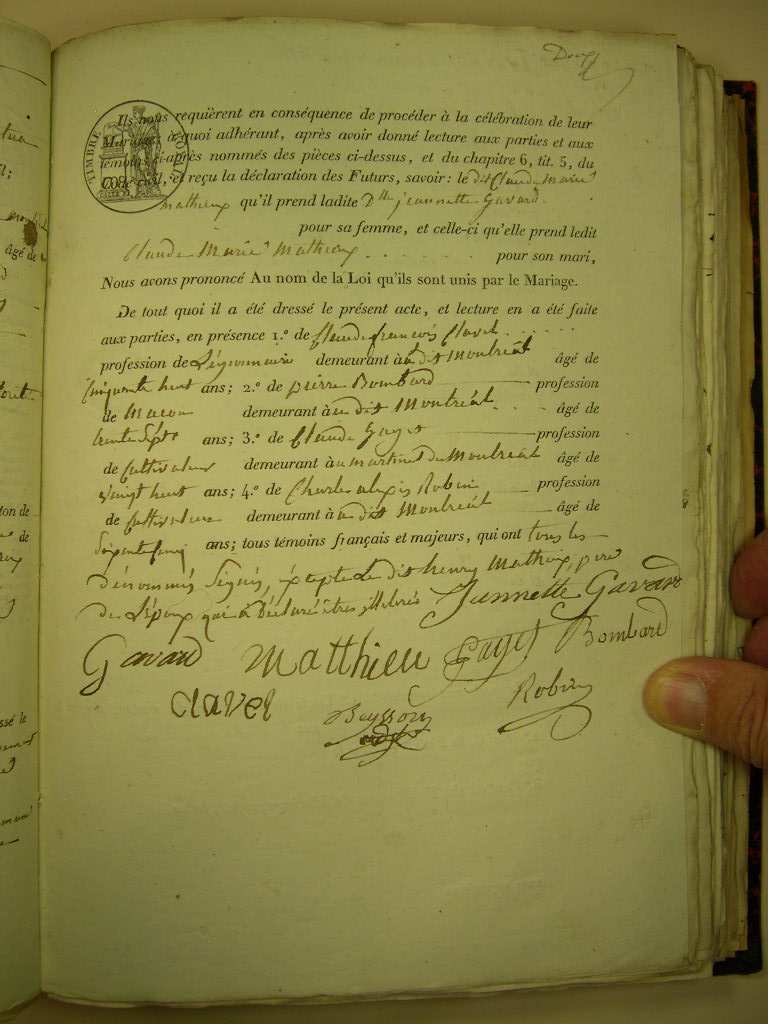 Douze
Ils nous requièrent en conséquence de procéder à la célébration de leur
Mariage, à quoi adhérant, après avoir donné lecture aux parties et aux
témoins ci-après nommés des pièces ci-dessus, et du chapitre 6, tit. 5, du
Code civil, et reçu la déclaration des Futurs, savoir: le dit Claude Marie
TIMBRE ROYAL
COP.
mathieux qu'il prend ladite Dlle jeannette Gavard
pour sa femme, et celle-ci qu'elle prend ledit
Claude Marie Mathieux pour son mari,
Nous avons prononcé Au nom de la Loi qu'ils sont unis par le Mariage.
De tout quoi il a été dressé le présent acte, et lecture en a été faite
aux parties, en présence 1.º de Claude françois Clavel
profession de Légionnaire demeurant à u dit Montreál âgé de
Cinquante huit ans; 2.º de pierre Bombard profession
de Macon demeurant à u dit Montreál âgé de
trente Sept ans; 3.º de Claude Guyet profession
de Cultivateur demeurant à u martinet de Montreál âgé de
vaingt huit ans; 4.º de Charle alexis Robin profession
de Cultivateur demeurant à u dit Montreál âgé de
Soixante Cinq ans; tous témoins français et majeurs, qui ont tous les
dénommés Signés, Excepte Le dit henry Mathieux, pere
de L'époux qui a Déclaré être illetrés Jeannette Gavard
Gavard Matthieu Guyet Bombard
Clavel Robin